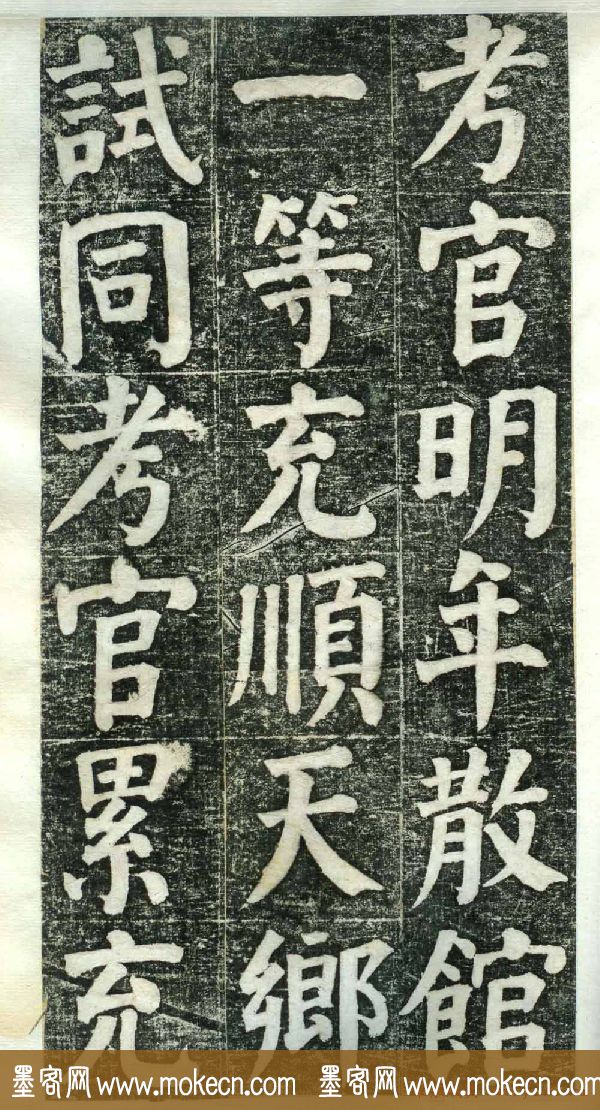 考官明年散館
一等充順天鄉
試同考官累充
墨客网 www.mokecn.com 墨客网 www.mokecn.com